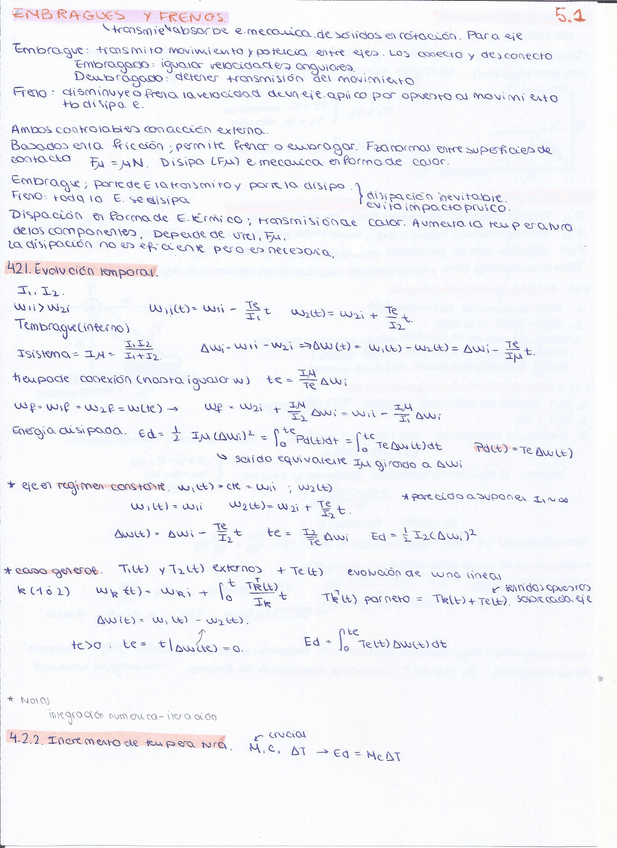 EMBRAGUES Y FRENOS.
5.1
transmite absorbe e.mecanica.de solidos en rotación. Para eje
Embrague: transmito movimiento y potencia entre ejes. Los conecto y desconecto
Embragado: igualar velocidades angulares.
Desembragado: detener transmisión del movimiento
Freno: disminuye o frena la velocidad de un eje. aplico par opuesto al movimiento
tb disipa e.
Ambos controlables con acción externa.
Basados en la fricción; permite frenar o embragar. Fza normal entre superficies de
contacto Fμ = μN. Disipa (Fμ) e mecanica en forma de calor.
Embrague; parte de E la transmito y parte la disipo.
Freno: toda la E. se disipa
} disipación inevitable.
evito impacto brusco.
Dispación en forma de E.térmica; transmisión de calor. Aumenta la temperatura
de los componentes. Depende de Vrel, Fμ.
La disipación no es eficiente pero es necesaria.
4.2.1. Evolución temporal.
I1, I2.
ω1i > ω2i ω1,i(t) = ω1i - Te/I1 t ω2(t) = ω2i + Te/I2 t.
Tembrague (interno)
Isistema = IM = I1I2/I1+I2. Δωi = ω1i - ω2i ⇒ Δω(t) = ω1(t) - ω2(t) = Δωi - Te/IM t.
tiempo de conexión (hasta igualar ω) te = IM/Te Δωi
ωf = ω1f = ω2f = ω(te) → ωf = ω2i + IM/I2 Δωi = ω1i - IM/I1 Δωi
Energía disipada. Ed = 1/2 IM(Δωi)² = ∫0^te Pd(t)dt = ∫0^te TeΔω(t)dt Pd(t) = TeΔω(t)
↳ solido equivalente IM girando a Δωi
* eje en regimen constante. ω1(t) = cte = ω1i ; ω2(t)
* parecido a suponer I1 ≈ ∞
ω1(t) = ω1i ω2(t) = ω2i + Te/I2 t.
Δω(t) = Δωi - Te/I2 t te = I2/Te Δωi Ed = 1/2 I2(Δωi)²
* caso general. T1(t) y T2(t) externos + Te(t) evolución de ω no lineas
k (1 ó 2) ωk(t) = ωki + ∫0^t Tk*(t)/Ik t Tk*(t) par neto = Tk(t) + Te(t). sobre cada eje
Δω(t) = ω1(t) - ω2(t).
te>0 : te = t | Δω(te) = 0. Ed = ∫0^te Te(t)Δω(t)dt
* Notas
integración numerica - iteración
4.2.2. Incremento de temperatura. M, C, ΔT → Ed = McΔT
↙ crucial